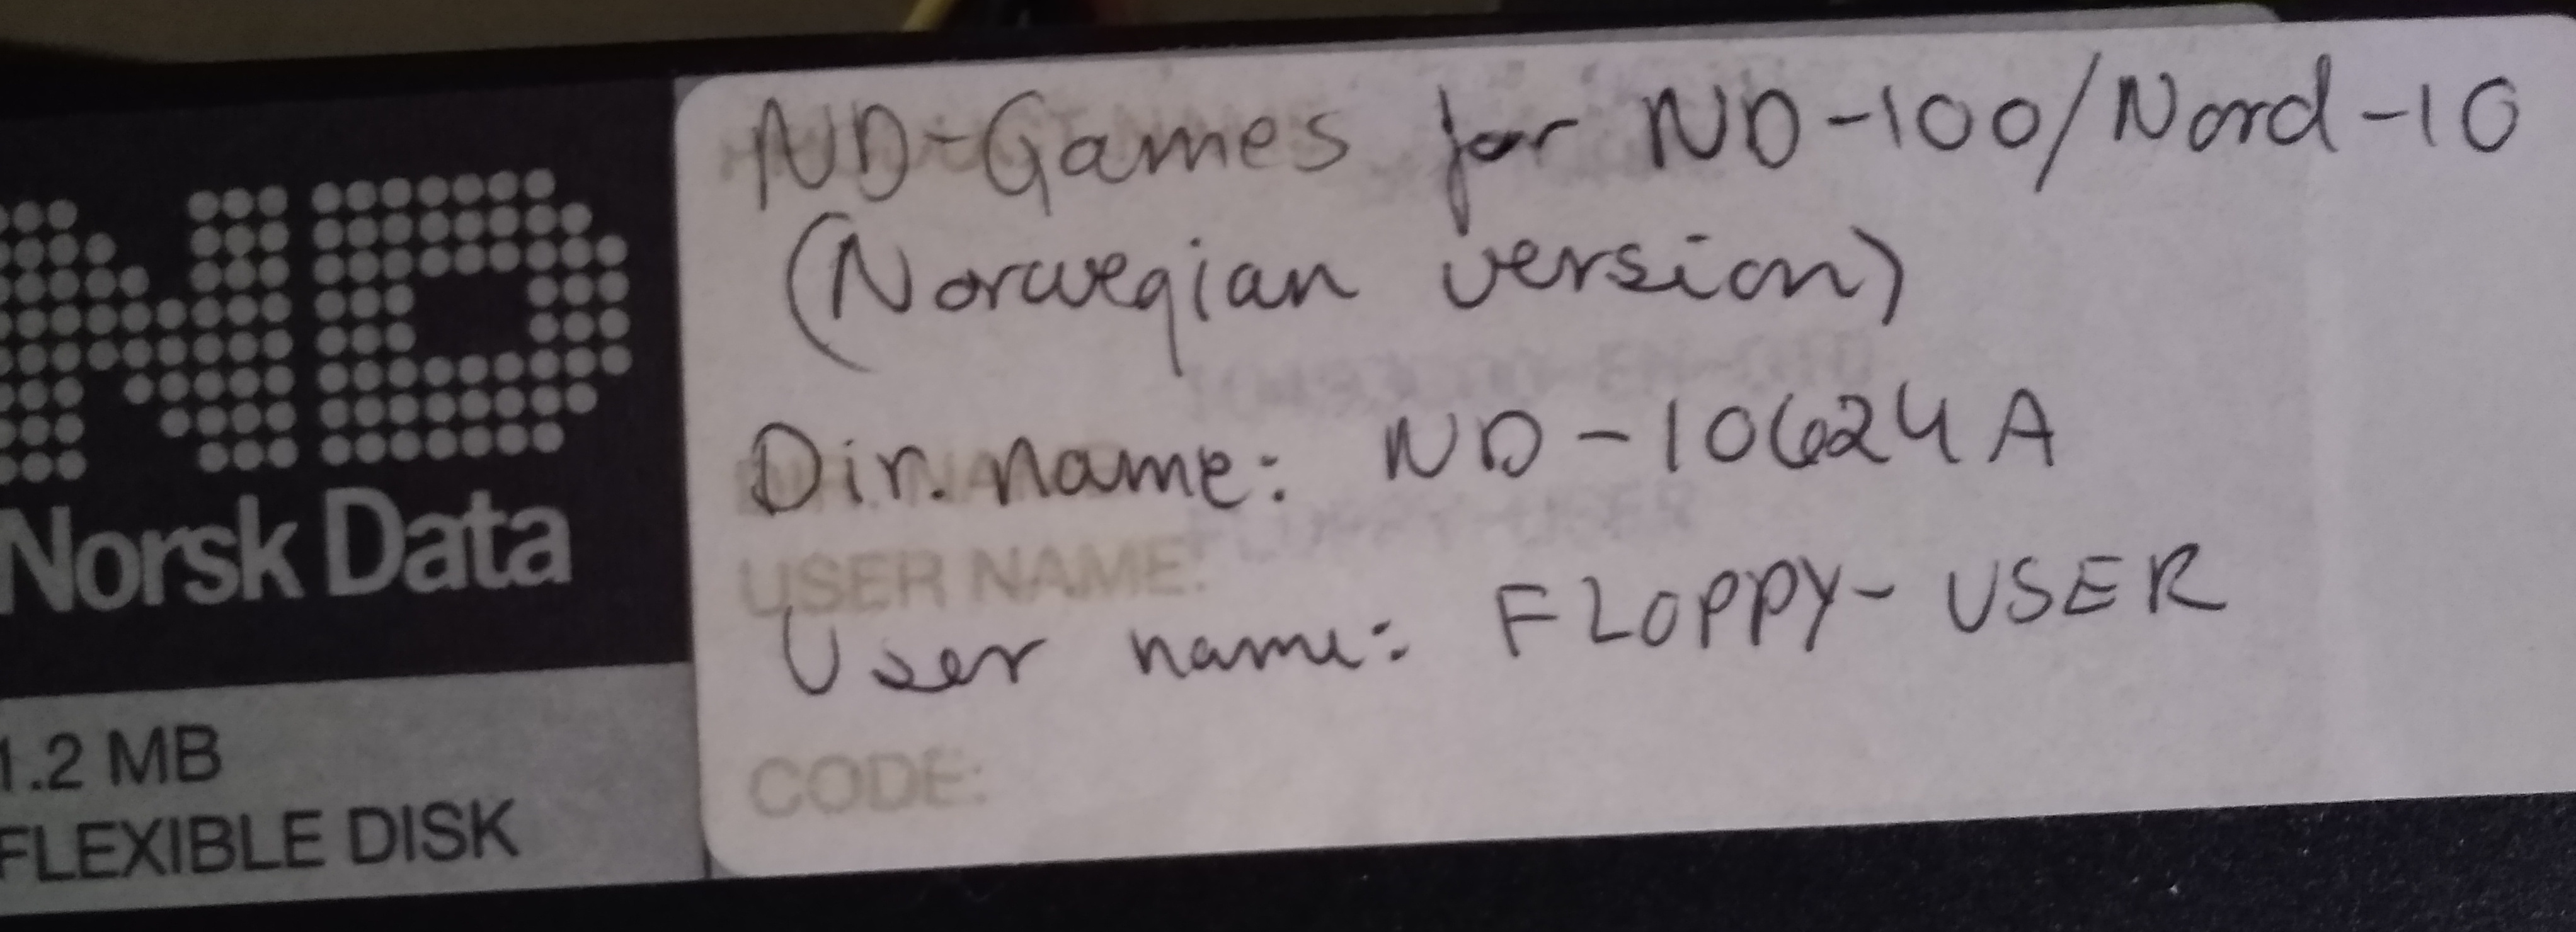 ND
Norsk Data
1.2 MB
FLEXIBLE DISK
ND-Games for ND-100/Nord-10
(Norwegian version)
Dir. name: ND-10624A
USER NAME:
FLOPPY-USER
User name: FLOPPY-USER
CODE: